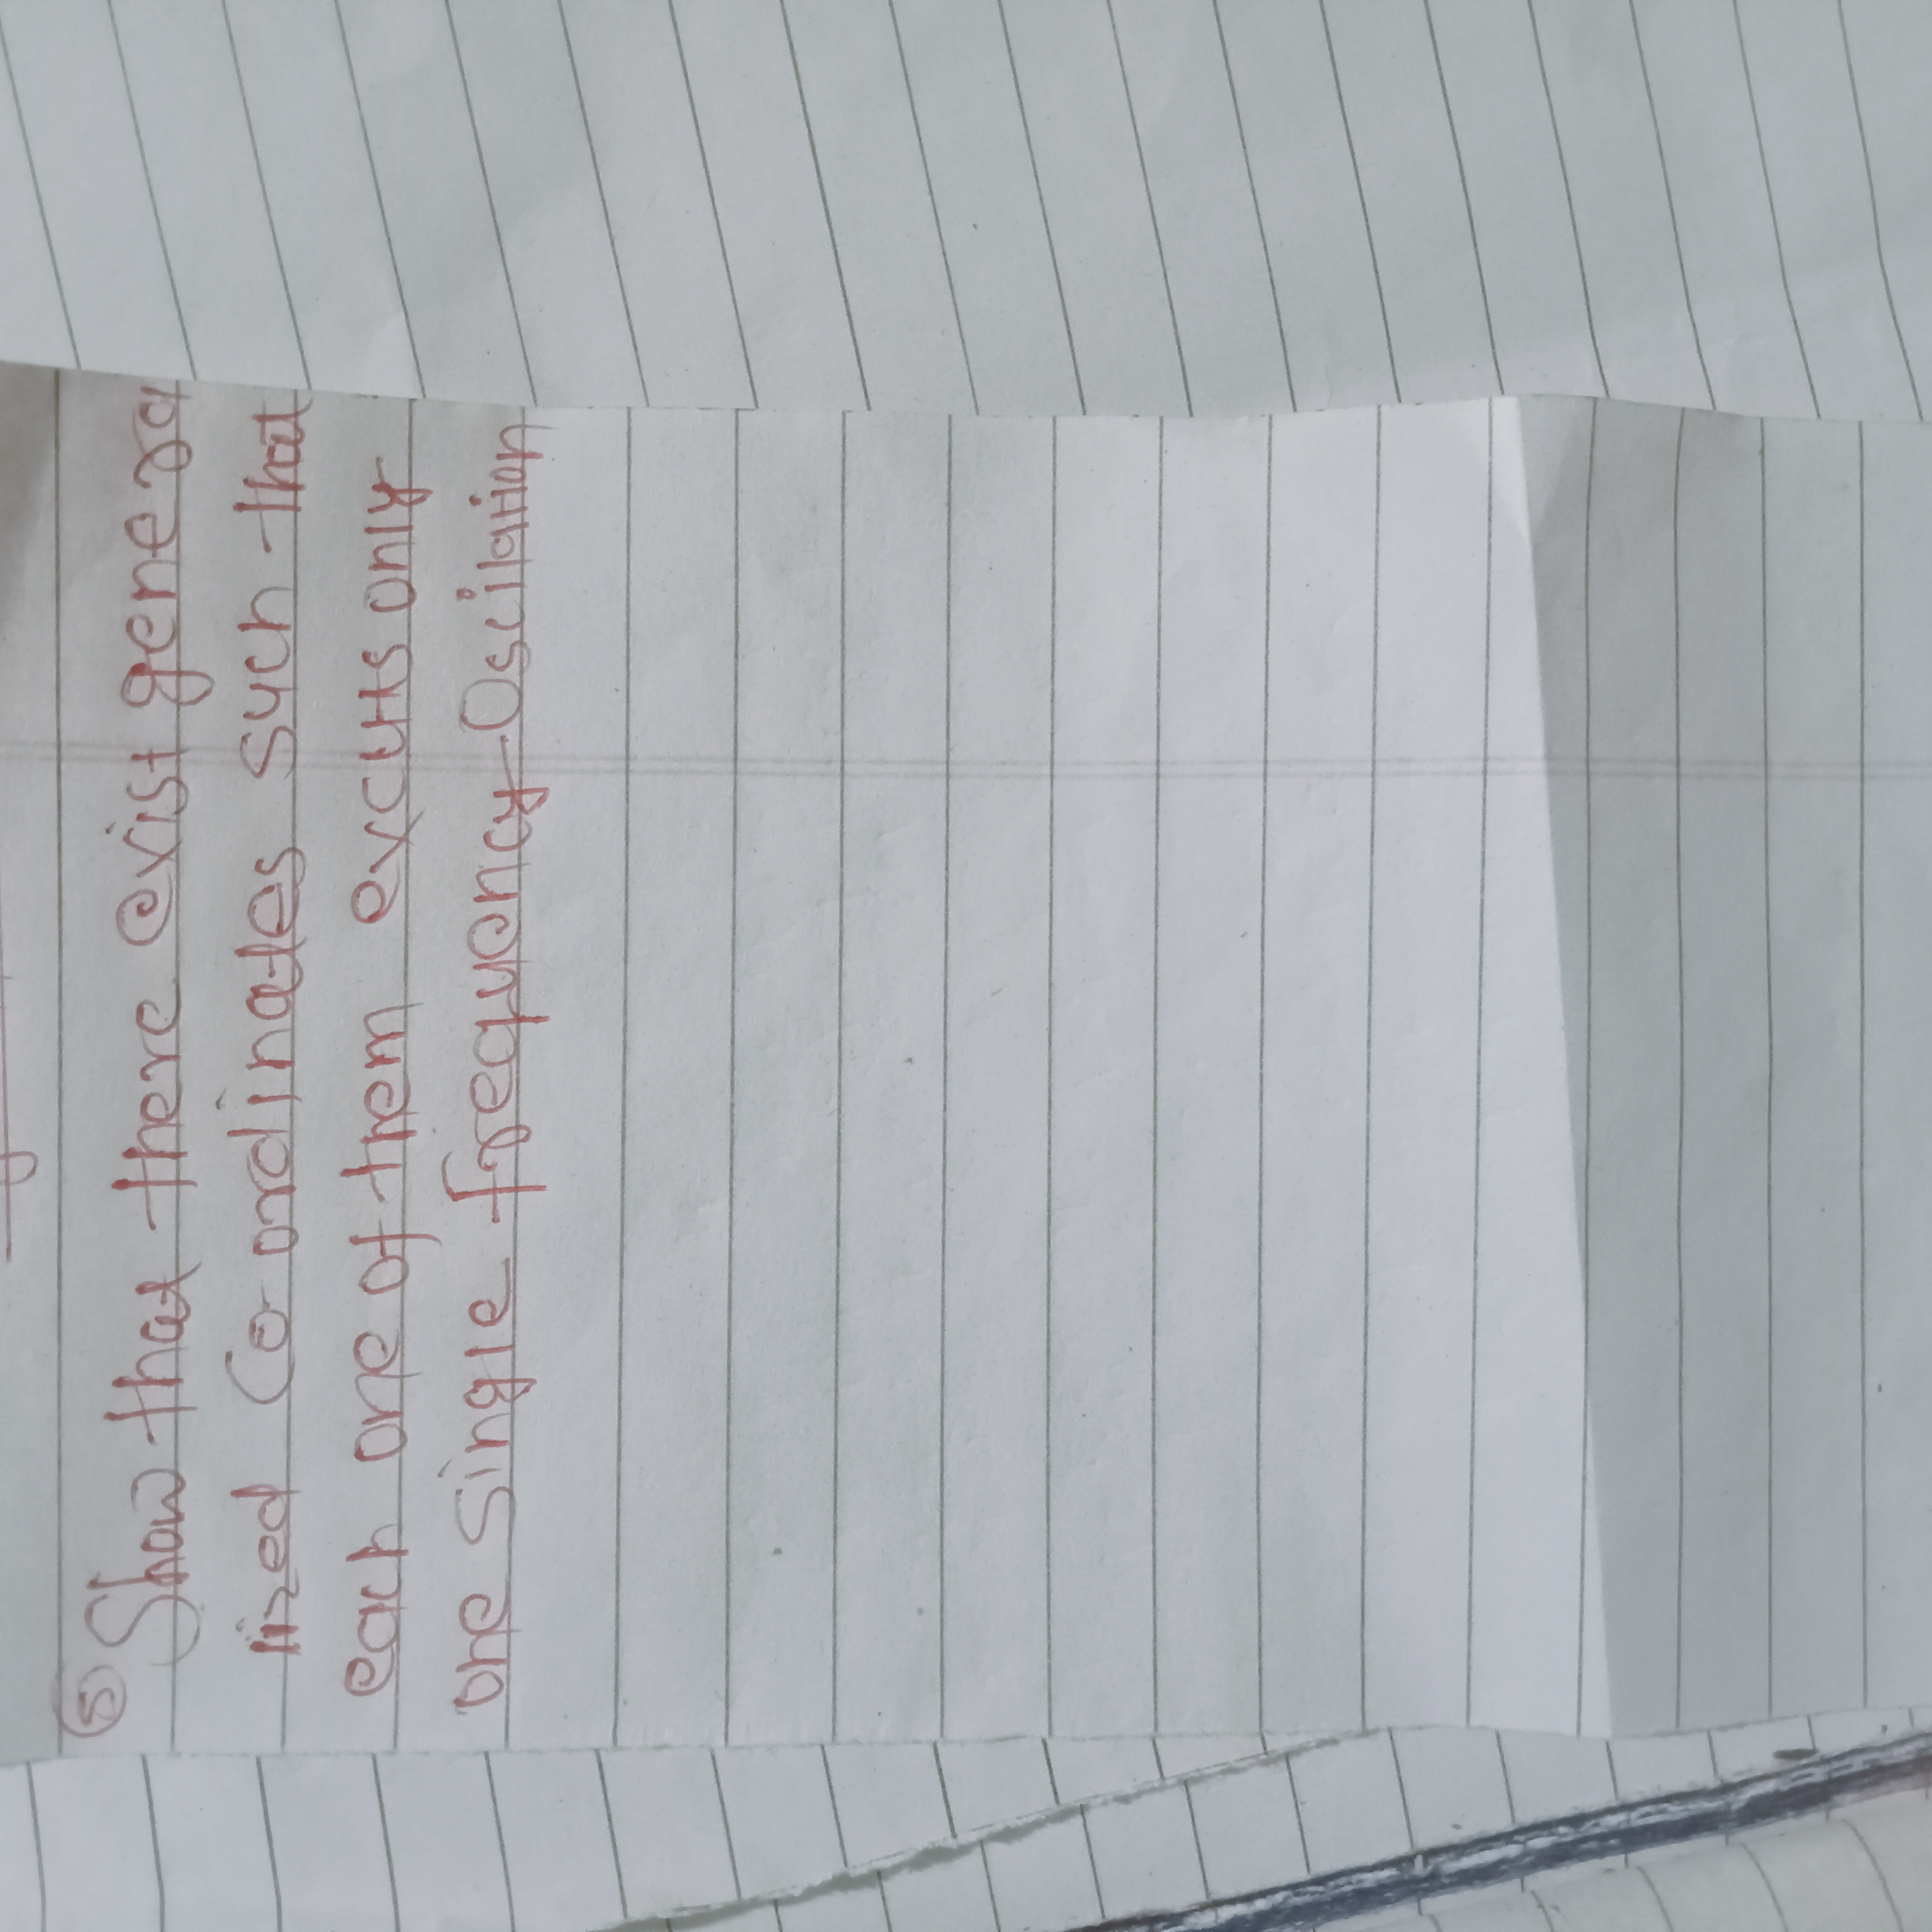 ⑤ Show that there exist genera
lized Co-ordinates such that
each one of them excuts only
one single frequency Oscilation